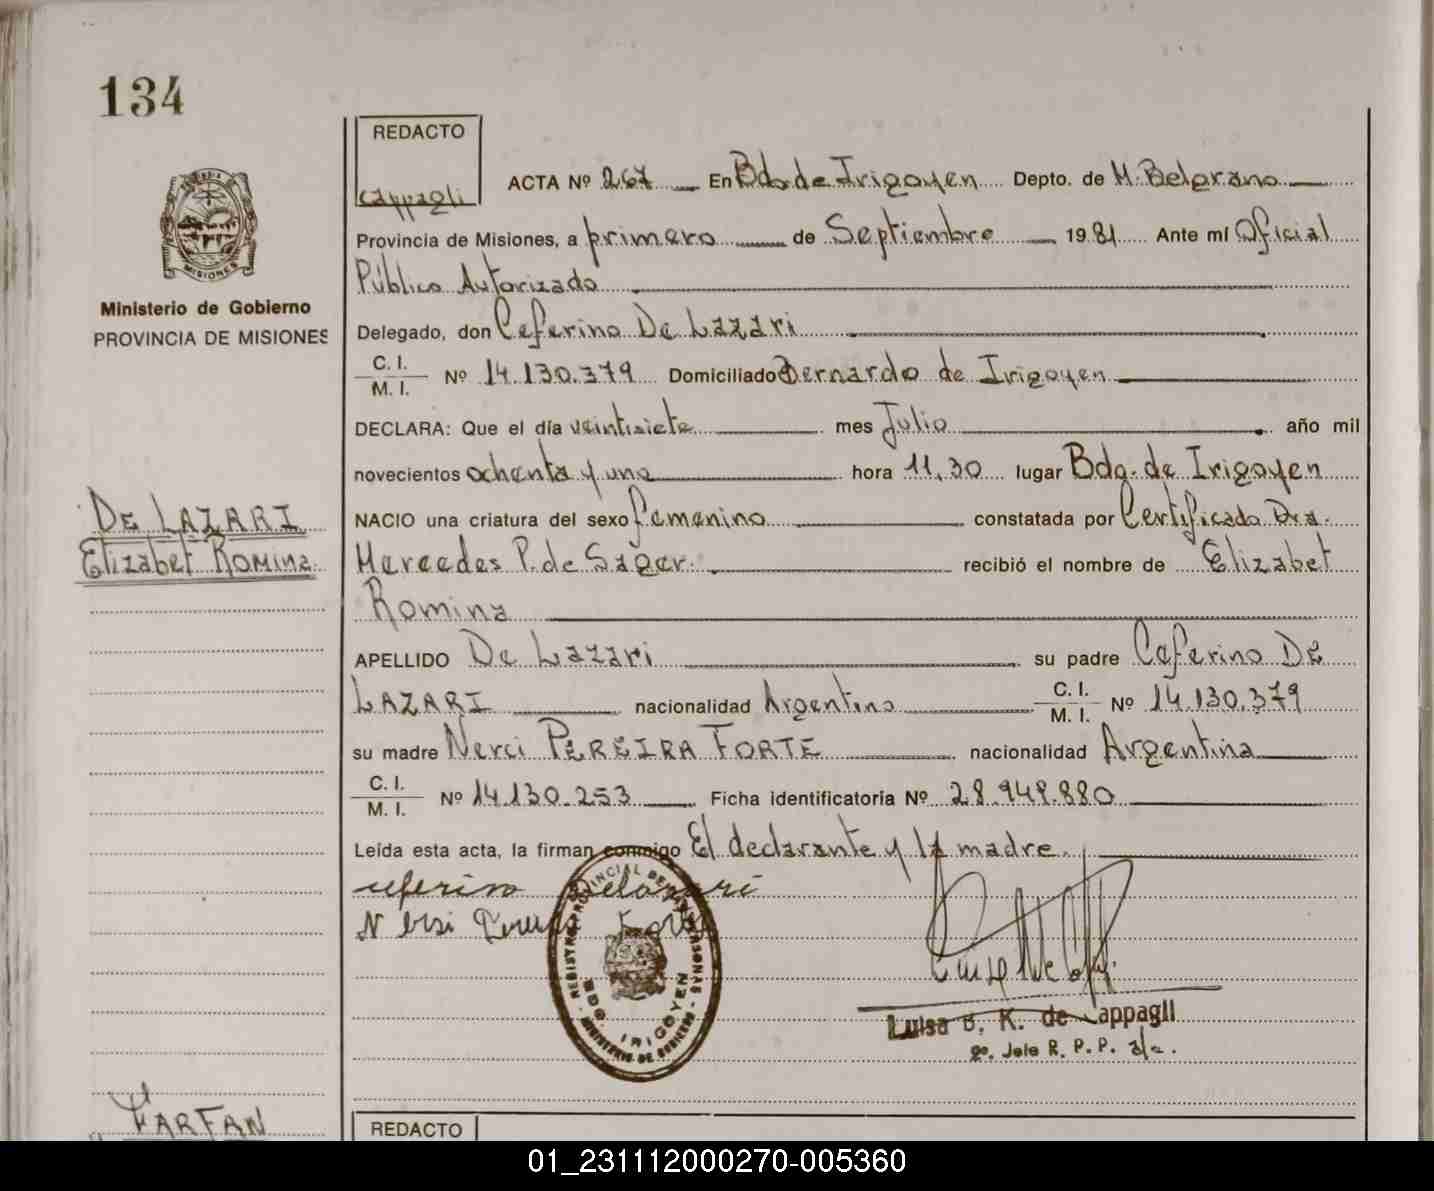 134
REDACTO
Cappagli
ACTA Nº 267 En Bdo. de Irigoyen Depto. de M. Belgrano
MISIONES
Provincia de Misiones, a primero de Septiembre 1981 Ante mí Oficial
Público Autorizado
Ministerio de Gobierno
PROVINCIA DE MISIONES
Delegado, don Ceferino De Lazari
C. I.
M. I. Nº 14.130.379 Domiciliado Bernardo de Irigoyen
DECLARA: Que el día veintisiete mes Julio año mil
novecientos ochenta y uno hora 11,30 lugar Bdo. de Irigoyen
DE LAZARI
Elizabet ROMINA
NACIO una criatura del sexo femenino constatada por Certificado Dra.
Mercedes P. de Sager. recibió el nombre de Elizabet
Romina
APELLIDO De Lazari su padre Ceferino DE
LAZARI nacionalidad Argentino C. I.
M. I. Nº 14.130.379
su madre Nerci PEREIRA FORTE nacionalidad Argentina
C. I.
M. I. Nº 14.130.253 Ficha identificatoria Nº 28.948.880
Leída esta acta, la firman conmigo El declarante y la madre.
REGISTRO PROVINCIAL DE LAS PERSONAS
BDO. IRIGOYEN
MINISTERIO DE GOBIERNO
Luisa B. K. de Cappagli
Jefe R. P. P. a/c.
FARFAN
REDACTO
01_231112000270-005360